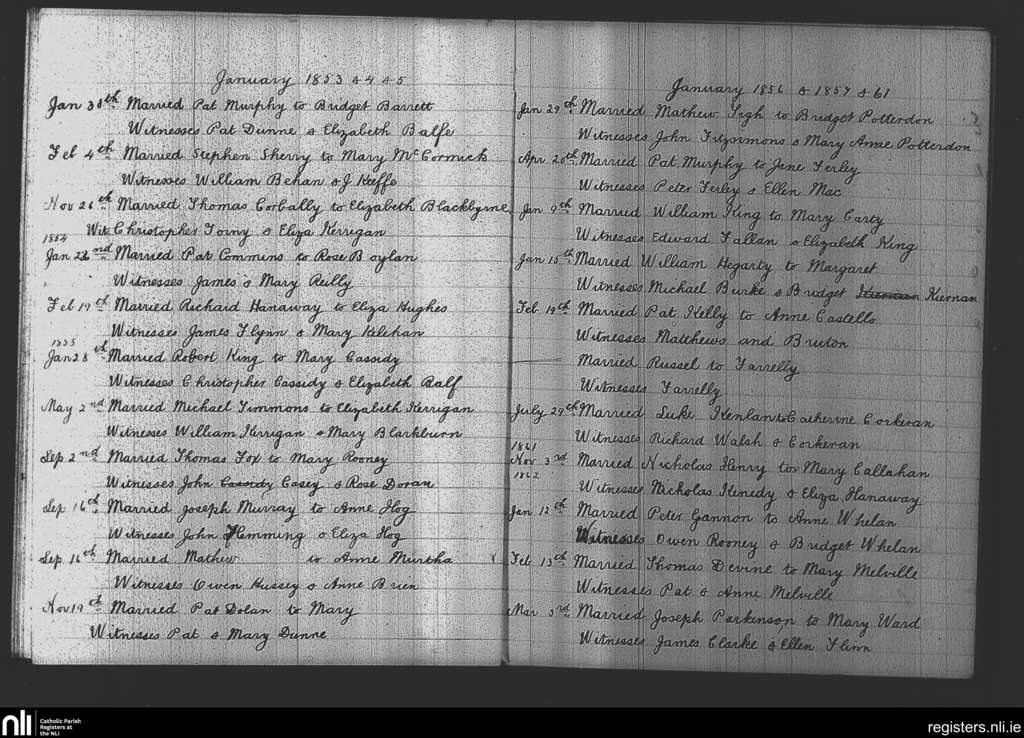 January 1853 & 4 & 5
Jan 30th Married Pat Murphy to Bridget Barrett
Witnesses Pat Dunne & Elizabeth Balfe
Feb 4th Married Stephen Sherry to Mary McCormick
Witnesses William Behan & J Keeffe
Nov 26th Married Thomas Corbally to Elizabeth Blackbyrne
Wit Christopher Torny & Eliza Kerrigan
1854
Jan 22nd Married Pat Commins to Rose Boylan
Witnesses James & Mary Reilly
Feb 19th Married Richard Hanaway to Eliza Hughes
Witnesses James Flynn & Mary Kelehan
1855
Jan 28th Married Robert King to Mary Cassidy
Witnesses Christopher Cassidy & Elizabeth Balf
May 2nd Married Michael Timmons to Elizabeth Kerrigan
Witnesses William Kerrigan & Mary Blackburn
Sep 2nd Married Thomas Fox to Mary Rooney
Witnesses John Cassidy Casey & Rose Doran
Sep 16th Married Joseph Murray to Anne Hog
Witnesses John Flemming & Eliza Hog
Sep 16th Married Mathew to Anne Murtha
Witnesses Owen Hussey & Anne Brien
Nov 19th Married Pat Dolan to Mary
Witnesses Pat & Mary Dunne
January 1856 & 1857 & 61
Jan 29th Married Mathew Tigh to Bridget Potterdon
Witnesses John Fitzsimons & Mary Anne Potterdon
Apr 20th Married Pat Murphy to Jane Ferley
Witnesses Peter Ferley & Ellen Mac
Jan 9th Married William King to Mary Carty
Witnesses Edward Fallan & Elizabeth King
Jan 15th Married William Hegarty to Margaret
Witnesses Michael Burke & Bridget Kiernan Kiernan
Feb 19th Married Pat Kelly to Anne Castello
Witnesses Matthews and Bruton
Married Russel to Farrelly
Witnesses Farrelly
July 29th Married Luke Kenlan to Catherine Corkeran
Witnesses Richard Walsh & Corkeran
1861
Nov 3rd Married Nicholas Henry to Mary Callahan
Witnesses Nicholas Kenedy & Eliza Hanaway
1862
Jan 12th Married Peter Gannon to Anne Whelan
Witnesses Owen Rooney & Bridget Whelan
Feb 13th Married Thomas Devine to Mary Melville
Witnesses Pat & Anne Melville
Mar 3rd Married Joseph Parkinson to Mary Ward
Witnesses James Clarke & Ellen Flinn
nli Catholic Parish
Registers at
the NLI
registers.nli.ie